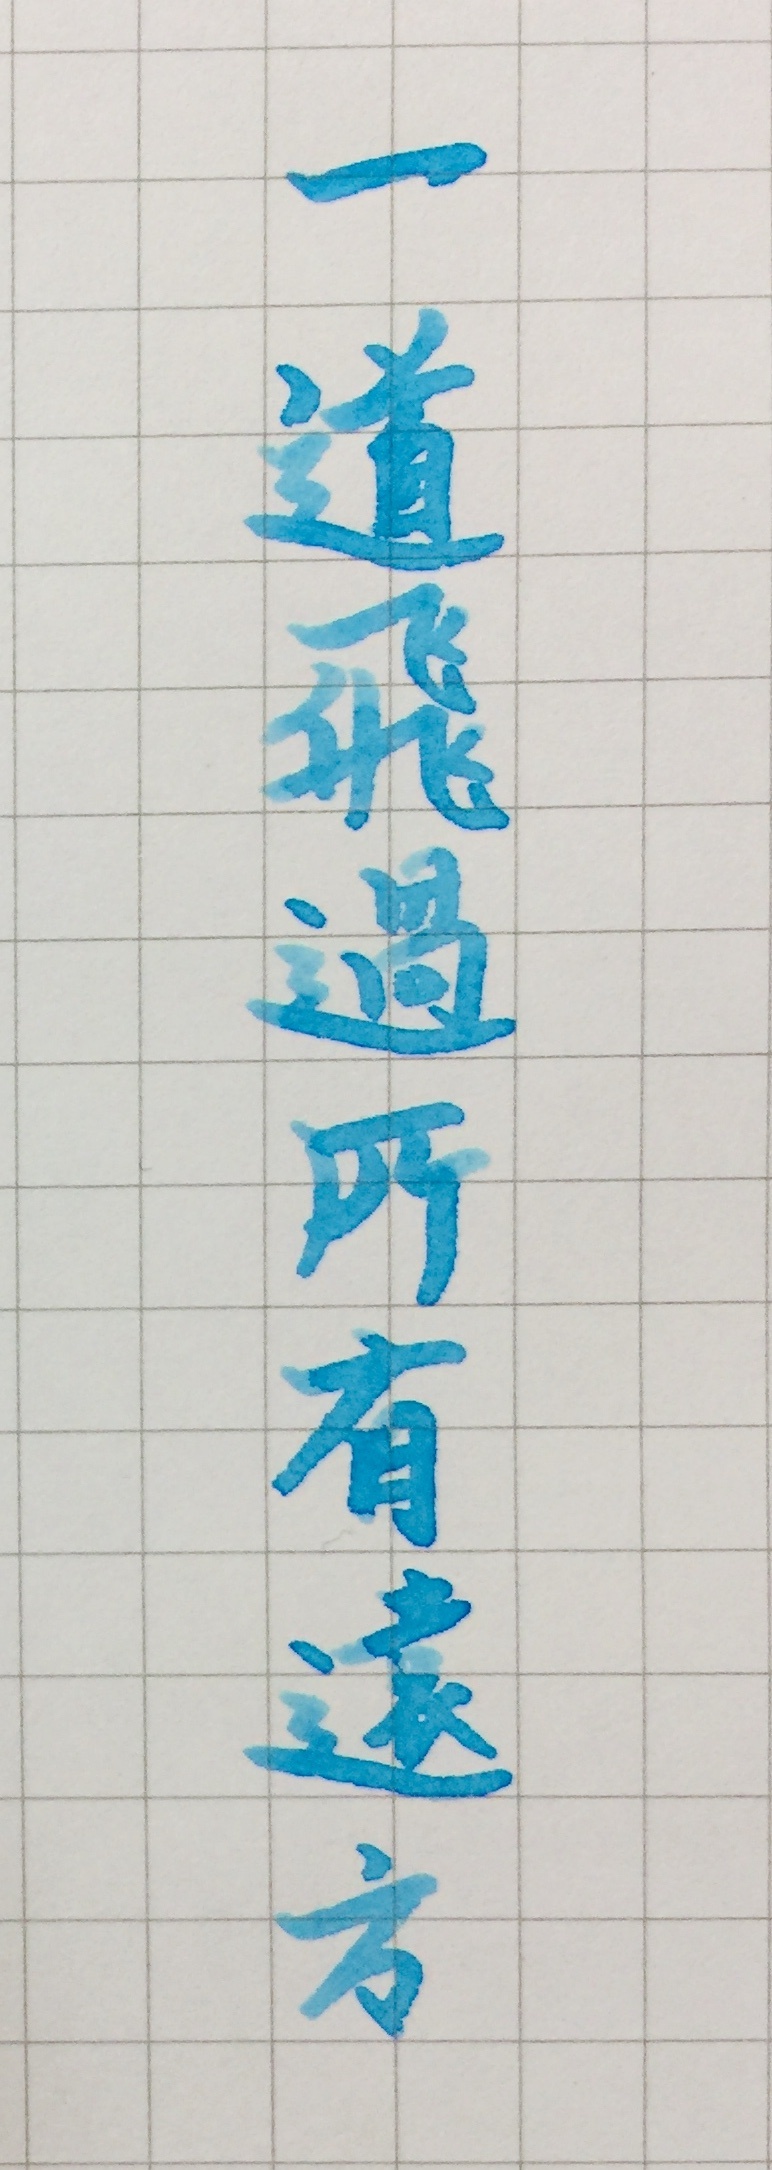 一道飛過所有遠方